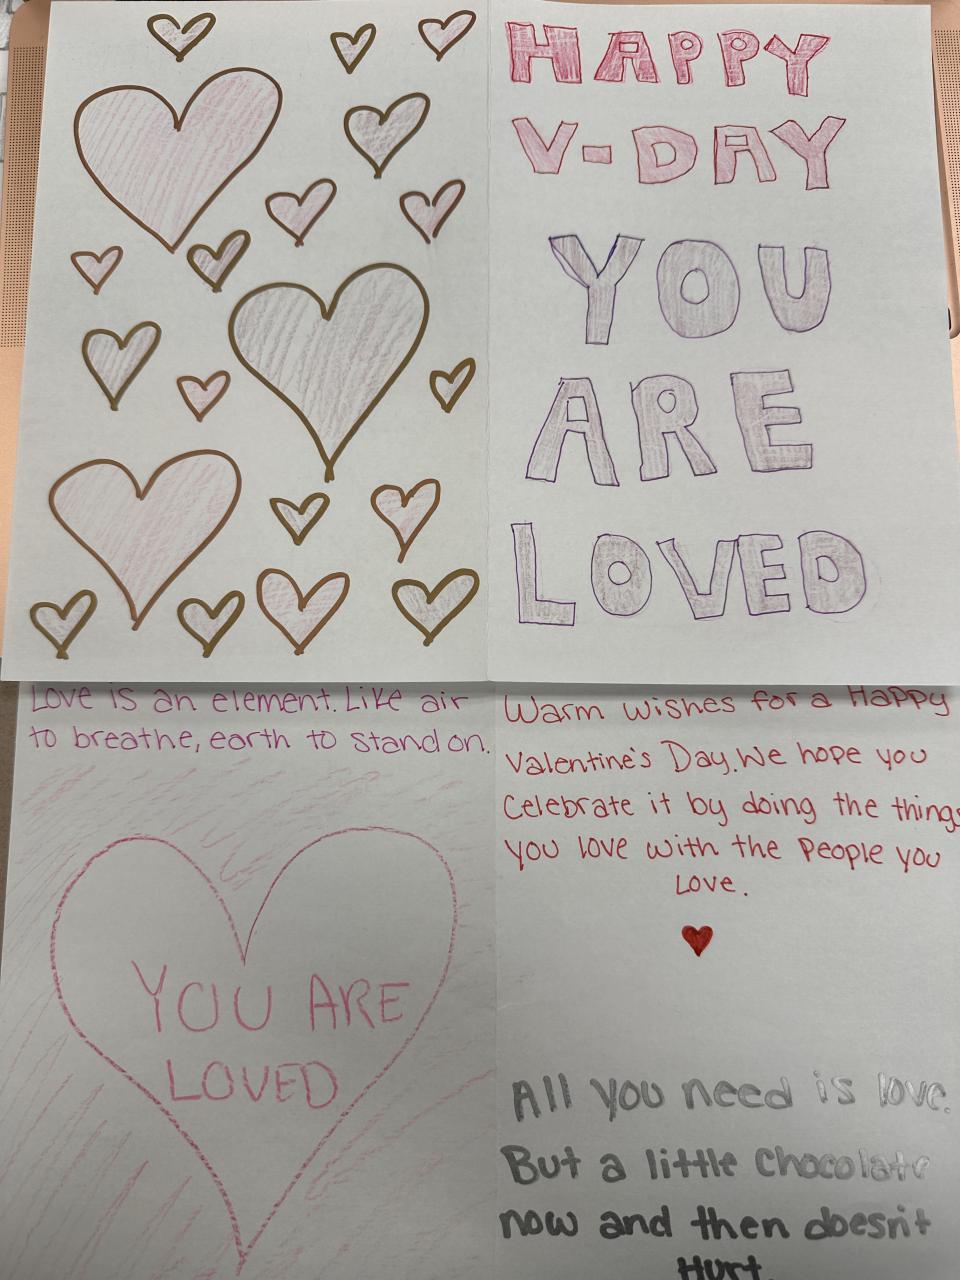 HAPPY
V-DAY
YOU
ARE
LOVED
Love is an element. Like air
to breathe, earth to stand on.
YOU ARE
LOVED
Warm wishes for a Happy
Valentine's Day. We hope you
Celebrate it by doing the things
you love with the People you
Love.
All you need is love.
But a little Chocolate
now and then doesn't
Hurt.